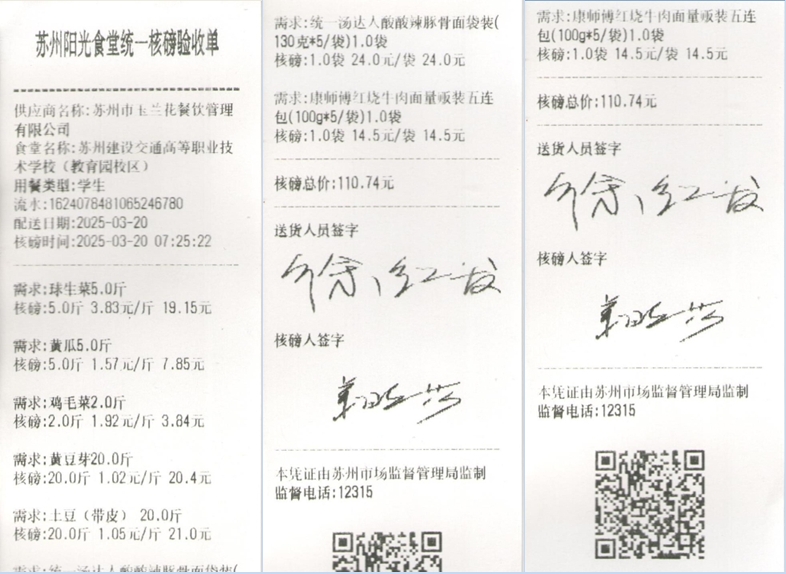 苏州阳光食堂统一核磅验收单
供应商名称:苏州市玉兰花餐饮管理
有限公司
食堂名称:苏州建设交通高等职业技
术学校(教育园校区)
用餐类型:学生
流水:1624078481065246780
配送日期:2025-03-20
核磅时间:2025-03-20 07:25:22
需求:球生菜5.0斤
核磅:5.0斤 3.83元/斤 19.15元
需求:黄瓜5.0斤
核磅:5.0斤 1.57元/斤 7.85元
需求:鸡毛菜2.0斤
核磅:2.0斤 1.92元/斤 3.84元
需求:黄豆芽20.0斤
核磅:20.0斤 1.02元/斤 20.4元
需求:土豆(带皮) 20.0斤
核磅:20.0斤 1.05元/斤 21.0元
需求:统一汤达人酸酸辣豚骨面袋装(
需求:统一汤达人酸酸辣豚骨面袋装(
130克*5/袋)1.0袋
核磅:1.0袋 24.0元/袋 24.0元
需求:康师傅红烧牛肉面量贩装五连
包(100g*5/袋)1.0袋
核磅:1.0袋 14.5元/袋 14.5元
核磅总价:110.74元
送货人员签字
徐红发
核磅人签字
本凭证由苏州市场监督管理局监制
监督电话:12315
需求:康师傅红烧牛肉面量贩装五连
包(100g*5/袋)1.0袋
核磅:1.0袋 14.5元/袋 14.5元
核磅总价:110.74元
送货人员签字
徐红发
核磅人签字
本凭证由苏州市场监督管理局监制
监督电话:12315